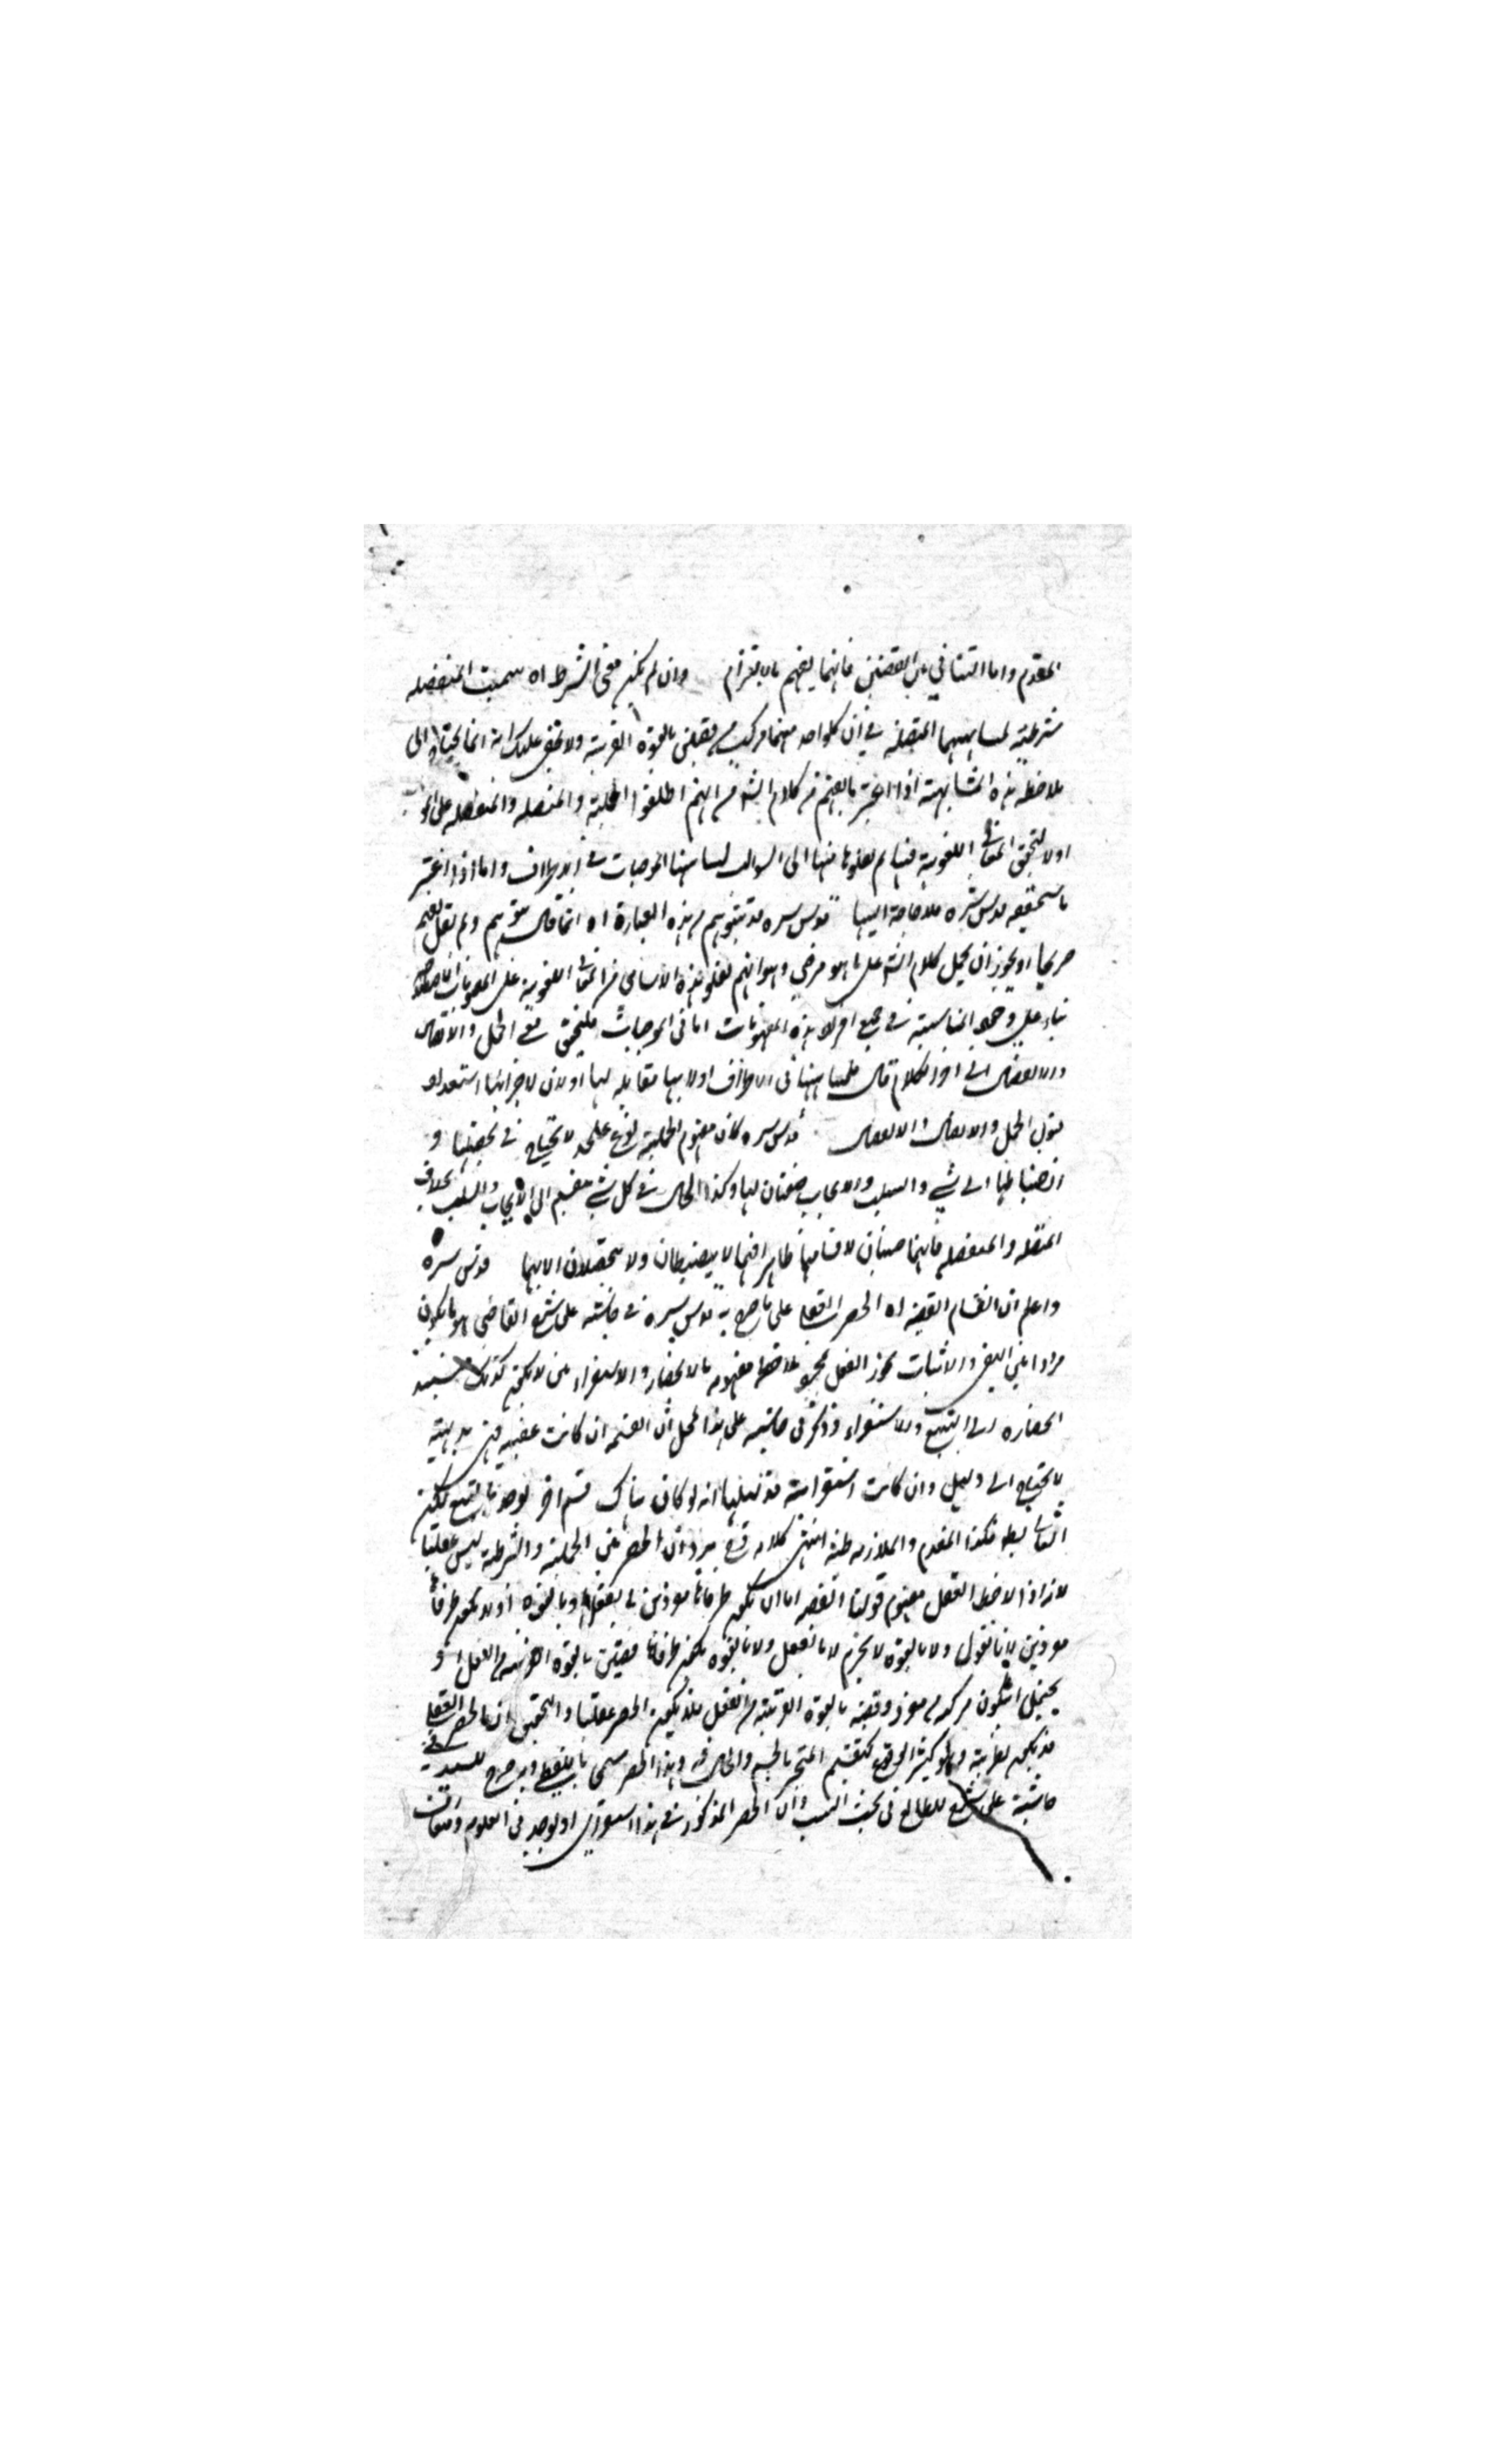 المقدم واما التنافي بين القضيتين فانهما يفهم بالالتزام وان لم يكن معنى الشرط اه سميت المنفصله
شرطية لمشابهتها المتصله في ان كلواحد منهما مركب من قضيتين بالقوة القريبة ولا يخفى عليك انه انما يحتاج الى
ملاحظه هذه المشابهة اذا اعتبر ما يفهم من كلام الش من انهم اطلقوا الحملية والمتصله والمنفصله على
اولا لتحقق المعانى اللغوية فيها ثم نقلوها منها الى السوالب لمشابهتها الموجبات في الاطراف واما اذا اعتبر
ما سيحققه قدس سره فلا حاجة اليها قدس سره قد يتوهم من هذه العبارة اه انما قال يتوهم ولم يقل يفهم
صريحا اذ يجوز ان يحمل كلام الش على ما هو مرضي وهو انهم نقلوا هذه الاسامى من المعانى اللغوية على المفهومات
بناء على وجود المناسبة في جميع افراد هذه المفهومات اما فى الموجبات فلتحقق معنى الحمل والاتصال
والانفصال الى اخر الكلام قال فلمشابهتها فى الاطراف او لانها مقابله لها او لان لاجزائها استعداد
قبول الحمل والاتصال والانفصال قدس سره كان مفهوم الحملية نوع على حد لا يحتاج في تحصيلها و
انضباطها الى شي والسلب والايجاب صنفان لها وكذا الحال في كل شي منقسم الى الايجاب والسلب بخلاف
المتصله والمنفصله فانهما صنفان لاقسامها ظاهرا فانهما لا ينضبطان ولا يتحصلان الا بها قدس سره
واعلم ان انقسام القضية اه الحصر العقلى على ما صرح به قدس سره في حاشيته على شرح القاضى هو ما يكون
مردا بين النفى والاثبات يجوز العقل بمجرد ملاحظه مفهومه بالانحصار والاستقراء بان لا يكون كذلك فيستند
انحصاره الى التتبع والاستقراء وذكر فى حاشيته على هذا المحل ان القسمة ان كانت عقليه فهى بديهية
لا يحتاج الى دليل وان كانت استقرائية فدليلها انه لو كان هناك قسم اخر لوجد بالتتبع لكن
التالى بط فكذا المقدم والملازمه ظنية انتهى كلامه يرد ان الحصر بين الحملية والشرطية ليس عقليا
لانه اذا لاحظ العقل مفهوم قولنا القضيه اما ان يكون طرفاها مفردين بالفعل او بالقوه او لا يكون طرفاها
مفردين لا بالفعل ولا بالقوة لا يجزم بالفعل ولا بالقوه يكون طرفاها قضيتين بالقوة القريبة من الفعل او
يحتمل ان يكون مركبه من مفرد وقضيه بالقوة القريبة من الفعل فلا يكون الحصر عقليا والتحقيق ان الحصر العقلى
قد يكون وهو كثير الوقوع كتقسيم المتحيز بالجسم والحال فيه وهذا الحصر سمى به صرح السيد في
حاشية على شرح المطالع فى بحث النسب وان الحصر المذكور في هذا استقرائى او لوجد فى العلوم